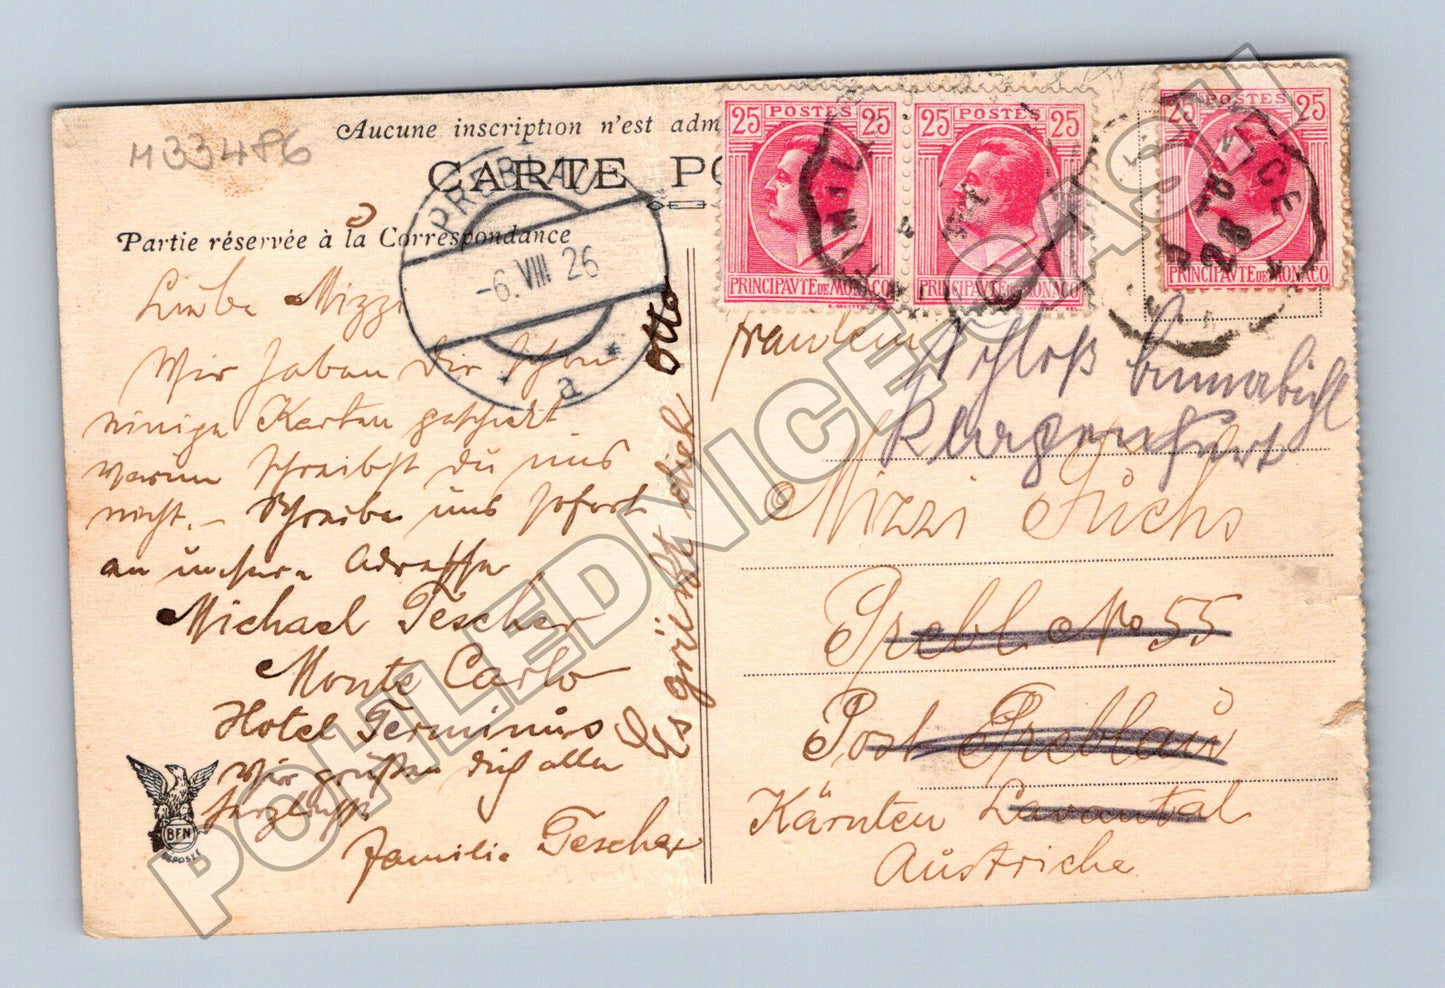 M33486
Aucune inscription n'est adm
CARTE PO
Partie réservée à la Correspondance
PREBLAU
-6.VIII 26
a
25 POSTES 25
PRINCIPAVTE DE MONACO
25 POSTES 25
PRINCIPAVTE DE MONACO
25 POSTES 25
PRINCIPAVTE DE MONACO
Liebe Mizzi
Wir haben Dir schon
einige Karten geschickt
warum schreibst du uns
nicht. – Schreibe uns sofort
an unsere Adresse
Michael Tescher
Monte Carlo
Hotel Terminus
Wir grüßen dich allen
herzlichst
Familie Tescher
Es grüßt dich Otto
BFN
DEPOSEE
Fräulein
Schloß
Klagenfurt
Mizzi Fuchs
Prebl No 55
Post Preblau
Kärnten Lavantal
Austriche
POHLEDNICE.CASH